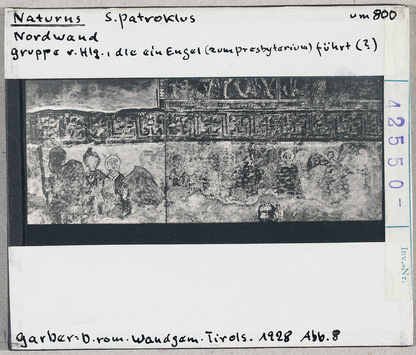 Naturns S. Patroklus um 800
Nordwand
gruppe v. Hlg., die ein Engel (zum Presbyterium) führt (?)
42550-
Inv.-Nr.
garber: D. rom. Wandgem. Tirols. 1928 Abb. 8